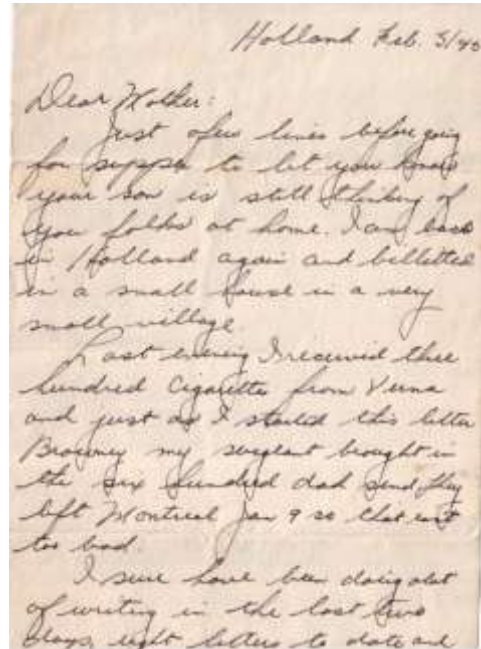 Holland Feb. 5/45
Dear Mother:
Just a few lines before going
for supper to let you know
your son is still thinking of
you folks at home. I am back
in Holland again and billetted
in a small house in a very
small village.
Last evening I received three
hundred Cigarettes from Verna
and just as I started this letter
Browney my sergeant brought in
the six hundred dad send they
left Montreal Jan 9 so that isn't
too bad.
I sure have been doing alot
of writing in the last two
days, eight letters to date and